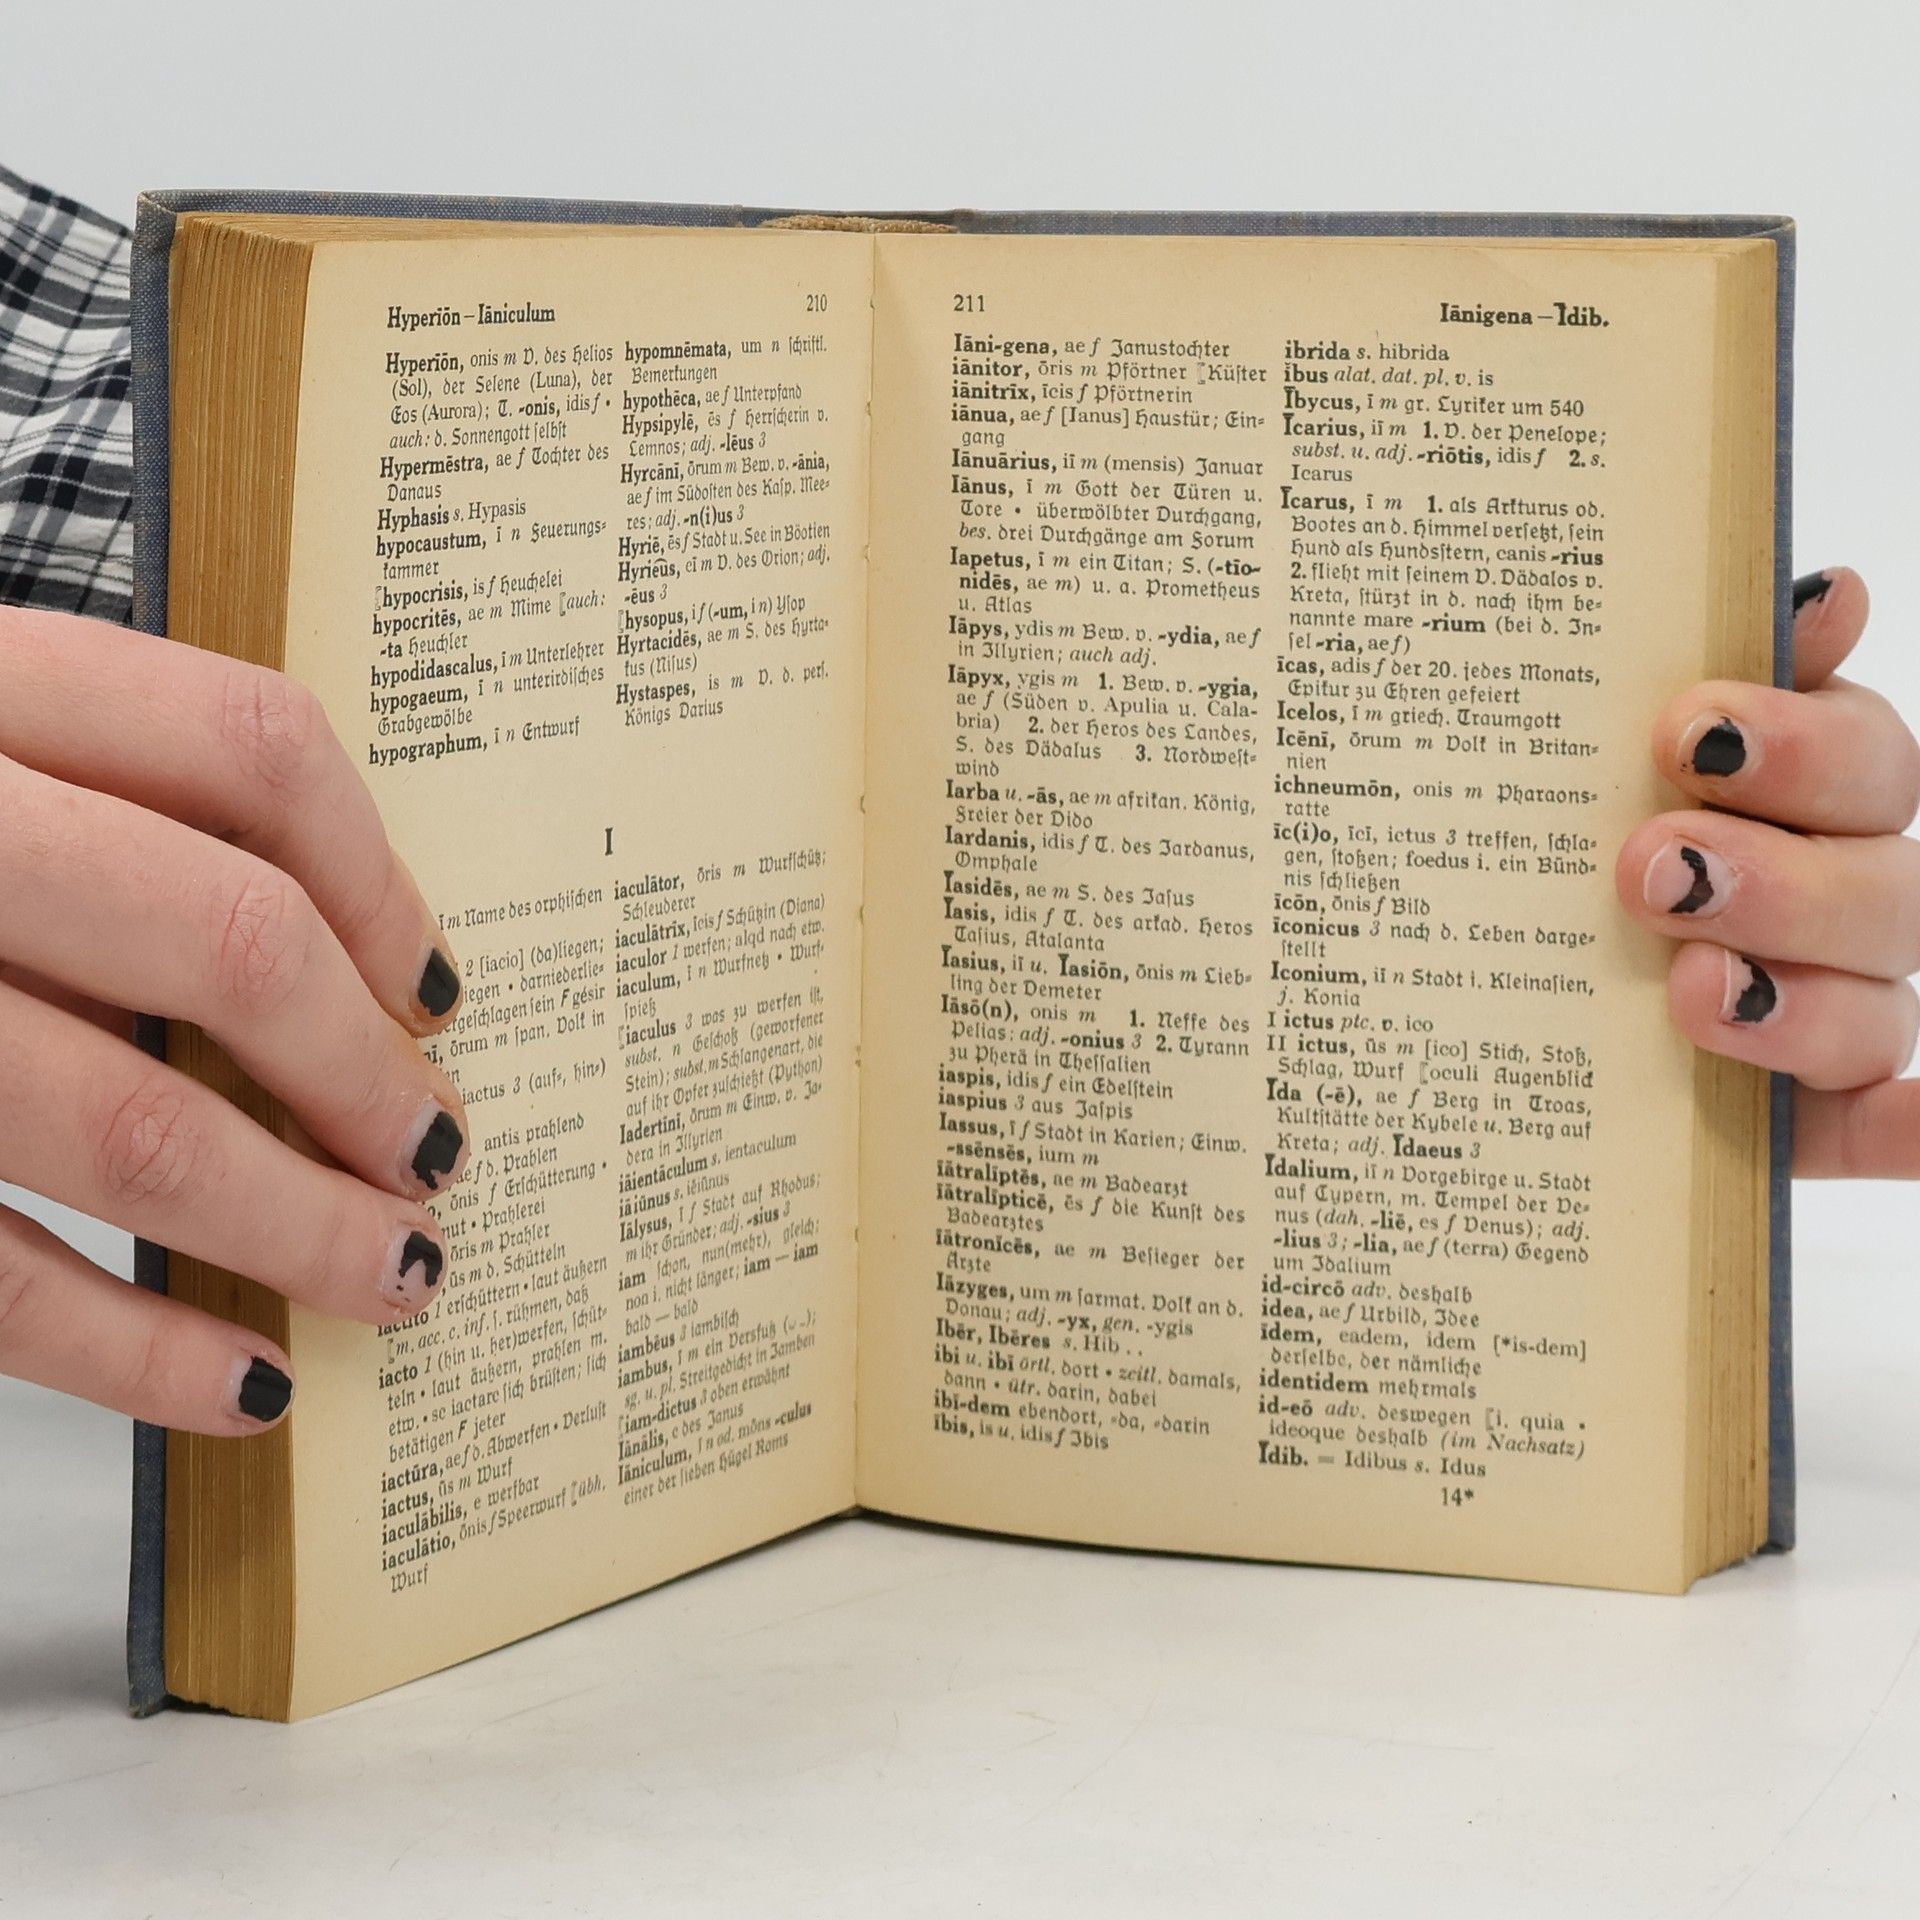 Hyperīōn – Iāniculum 210
Hyperīōn, onis m V. des Helios
(Sol), der Selene (Luna), der
Eos (Aurora); T. -onis, idis f •
auch: d. Sonnengott ſelbſt
Hypermēstra, ae f Tochter des
Danaus
Hyphasis s. Hypasis
hypocaustum, ī n Feuerungs=
kammer
[hypocrisis, is f Heuchelei
hypocritēs, ae m Mime [auch:
-ta Heuchler
hypodidascalus, ī m Unterlehrer
hypogaeum, ī n unterirdiſches
Grabgewölbe
hypographum, ī n Entwurf
hypomnēmata, um n ſchriftl.
Bemerkungen
hypothēca, ae f Unterpfand
Hypsipylē, ēs f Herrſcherin v.
Lemnos; adj. -lēus 3
Hyrcānī, ōrum m Bew. v. -ānia,
ae f im Südoſten des Kaſp. Mee=
res; adj. -n(i)us 3
Hyriē, ēs f Stadt u. See in Böotien
Hyrieūs, eī m V. des Orion; adj.
-ēus 3
[hysopus, i f (-um, i n) Yſop
Hyrtacidēs, ae m S. des Hyrta=
kus (Niſus)
Hystaspes, is m V. d. perſ.
Königs Darius
I
ī m Name des orphiſchen
2 [iacio] (da)liegen;
liegen • darniederlie=
ergeſchlagen ſein F gésir
nī, ōrum m ſpan. Volk in
en
iactus 3 (auf=, hin=)
antis prahlend
ae f d. Prahlen
ōnis f Erſchütterung •
mut • Prahlerei
ōris m Prahler
ūs m d. Schütteln
iactito 1 erſchüttern • laut äußern
[m. acc. c. inf. ſ. rühmen, daß
iacto 1 (hin u. her)werfen, ſchüt=
teln • laut äußern, prahlen m.
etw. • se iactare ſich brüſten; ſich
betätigen F jeter
iactūra, ae f d. Abwerfen • Verluſt
iactus, ūs m Wurf
iaculābilis, e werfbar
iaculātio, ōnis f Speerwurf [übh.
Wurf
iaculātor, ōris m Wurfſchütz;
Schleuderer
iaculātrīx, īcis f Schützin (Diana)
iaculor 1 werfen; alqd nach etw.
iaculum, ī n Wurfnetz • Wurf=
ſpieß
[iaculus 3 was zu werfen iſt,
subst. n Geſchoß (geworfener
Stein); subst. m Schlangenart, die
auf ihr Opfer zuſchießt (Python)
Iadertini, ōrum m Einw. v. Ja=
dera in Illyrien
iāientāculum s. ientaculum
iāiūnus s. iēiūnus
Iālysus, ī f Stadt auf Rhodus;
m ihr Gründer; adj. -sius 3
iam ſchon, nun(mehr), gleich;
non i. nicht länger; iam — iam
bald — bald
iambēus 3 iambiſch
iambus, ī m ein Versfuß (⏑–);
sg. u. pl. Streitgedicht in Jamben
[iam-dictus 3 oben erwähnt
Iānālis, e des Janus
Iāniculum, ī n od. mōns -culus
einer der ſieben Hügel Roms
211 Iānigena – Īdib.
Iāni-gena, ae f Janustochter
iānitor, ōris m Pförtner [Küſter
iānitrīx, īcis f Pförtnerin
iānua, ae f [Ianus] Haustür; Ein=
gang
Iānuārius, iī m (mensis) Januar
Iānus, ī m Gott der Türen u.
Tore • überwölbter Durchgang,
bes. drei Durchgänge am Forum
Iapetus, ī m ein Titan; S. (-tīo-
nidēs, ae m) u. a. Prometheus
u. Atlas
Iāpys, ydis m Bew. v. -ydia, ae f
in Illyrien; auch adj.
Iāpyx, ygis m 1. Bew. v. -ygia,
ae f (Süden v. Apulia u. Cala-
bria) 2. der Heros des Landes,
S. des Dädalus 3. Nordweſt=
wind
Iarba u. -ās, ae m afrikan. König,
Freier der Dido
Iardanis, idis f T. des Jardanus,
Omphale
Īasidēs, ae m S. des Jaſus
Īasis, idis f T. des arkad. Heros
Taſius, Atalanta
Īasius, iī u. Īasiōn, ōnis m Lieb=
ling der Demeter
Iāsō(n), onis m 1. Neffe des
Pelias; adj. -onius 3 2. Tyrann
zu Pherä in Theſſalien
iaspis, idis f ein Edelſtein
iaspius 3 aus Jaſpis
Iassus, ī f Stadt in Karien; Einw.
-ssēnsēs, ium m
iātralīptēs, ae m Badearzt
iātralīpticē, ēs f die Kunſt des
Badearztes
iātronīcēs, ae m Beſieger der
Ärzte
Iāzyges, um m ſarmat. Volk an d.
Donau; adj. -yx, gen. -ygis
Ibēr, Ibēres s. Hib . .
ibi u. ibī örtl. dort • zeitl. damals,
dann • ütr. darin, dabei
ibī-dem ebendort, =da, =darin
ībis, is u. idis f Ibis
ibrida s. hibrida
ibus alat. dat. pl. v. is
Ībycus, ī m gr. Lyriker um 540
Īcarius, iī m 1. V. der Penelope;
subst. u. adj. -riōtis, idis f 2. s.
Icarus
Īcarus, ī m 1. als Arkturus od.
Bootes an d. Himmel verſetzt, ſein
Hund als Hundsſtern, canis -rius
2. flieht mit ſeinem V. Dädalos v.
Kreta, ſtürzt in d. nach ihm be=
nannte mare -rium (bei d. In=
ſel -ria, ae f)
īcas, adis f der 20. jedes Monats,
Epikur zu Ehren gefeiert
Icelos, ī m griech. Traumgott
Icēnī, ōrum m Volk in Britan=
nien
ichneumōn, onis m Pharaons=
ratte
īc(i)o, īcī, ictus 3 treffen, ſchla=
gen, ſtoßen; foedus i. ein Bünd=
nis ſchließen
īcōn, ōnis f Bild
īconicus 3 nach d. Leben darge=
ſtellt
Iconium, iī n Stadt i. Kleinaſien,
j. Konia
I ictus ptc. v. ico
II ictus, ūs m [ico] Stich, Stoß,
Schlag, Wurf [oculi Augenblick
Īda (-ē), ae f Berg in Troas,
Kultſtätte der Kybele u. Berg auf
Kreta; adj. Īdaeus 3
Īdalium, iī n Vorgebirge u. Stadt
auf Cypern, m. Tempel der Ve=
nus (dah. -liē, es f Venus); adj.
-lius 3; -lia, ae f (terra) Gegend
um Idalium
id-circō adv. deshalb
idea, ae f Urbild, Idee
īdem, eadem, idem [*is-dem]
derſelbe, der nämliche
identidem mehrmals
id-eō adv. deswegen [i. quia •
ideoque deshalb (im Nachsatz)
Īdib. = Idibus s. Idus
14*